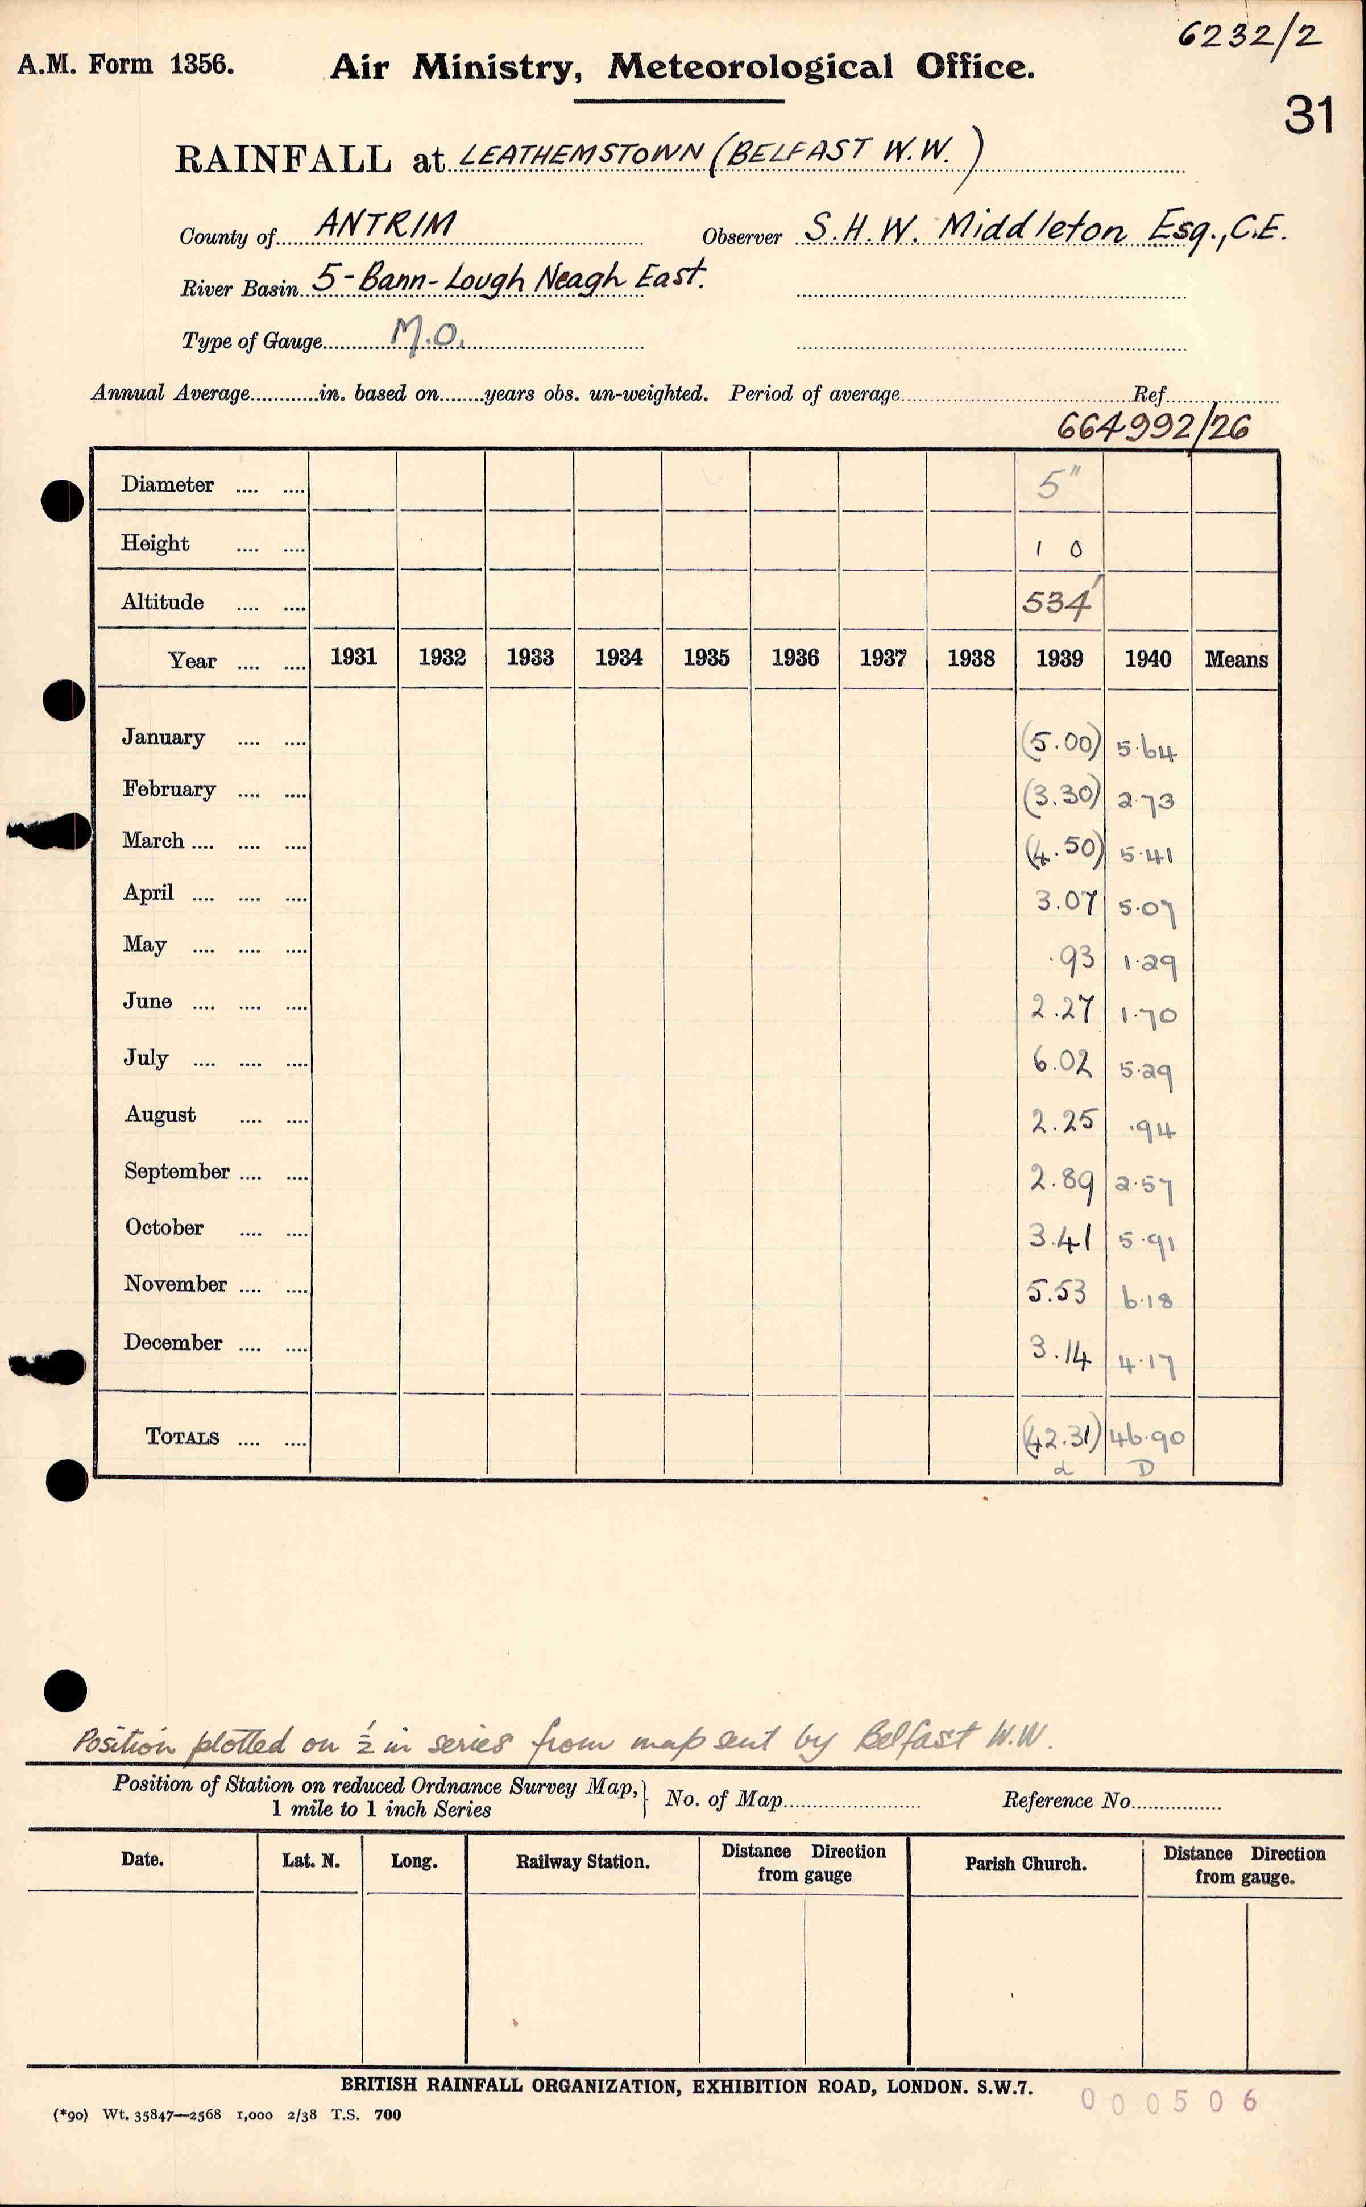 6232/2
A.M. Form 1356. Air Ministry, Meteorological Office.
31
RAINFALL at LEATHEMSTOWN (BELFAST W.W.)
County of ANTRIM Observer S.H.W. Middleton Esq., C.E.
River Basin 5-Bann-Lough Neagh East.
Type of Gauge M.O.
Annual Average............in. based on........years obs. un-weighted. Period of average.................... Ref...........
664992/26
Diameter .... .... 5"
Height .... .... 1 0
Altitude .... .... 534'
Year .... .... 1931 1932 1933 1934 1935 1936 1937 1938 1939 1940 Means
January .... .... (5.00) 5.64
February .... .... (3.30) 2.73
March .... .... .... (4.50) 5.41
April .... .... .... 3.07 5.07
May .... .... .... .93 1.29
June .... .... .... 2.27 1.70
July .... .... .... 6.02 5.29
August .... .... 2.25 .94
September .... .... 2.89 2.57
October .... .... 3.41 5.91
November .... .... 5.53 6.18
December .... .... 3.14 4.17
TOTALS .... .... (42.31) 46.90
d D
Position plotted on ½ in series from map sent by Belfast W.W.
Position of Station on reduced Ordnance Survey Map, } No. of Map.................... Reference No................
1 mile to 1 inch Series
Date. Lat. N. Long. Railway Station. Distance Direction from gauge Parish Church. Distance Direction from gauge.
BRITISH RAINFALL ORGANIZATION, EXHIBITION ROAD, LONDON. S.W.7.
000506
(*90) Wt. 35847—2568 1,000 2/38 T.S. 700